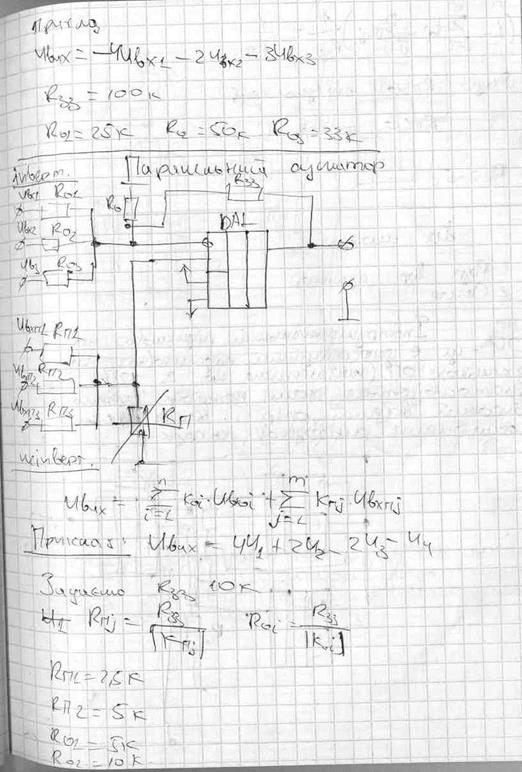 Приклад
Uвих = -4Uвх1 - 2Uвх2 - 3Uвх3
Rзз = 100к
R01 = 25к R02 = 50к R03 = 33к
інверт.
Паралельний суматор
Uвх1 R01
Uвх2 R02
Uвх3 R03
R0
Rзз
DA1
Uвхп1 Rп1
Uвхп2 Rп2
Uвхп3 Rп3
Rп
неінверт.
Uвих = n∑i=1 K0i · Uвх0i + m∑j=1 Kпj Uвхпj
Приклад: Uвих = 4U1 + 2U2 - 2U3 - U4
Задаємо Rзз 10к
Rпj = Rзз / |Kпj| R0i = Rзз / |K0i|
Rп1 = 2,5к
Rп2 = 5к
R01 = 5к
R02 = 10к